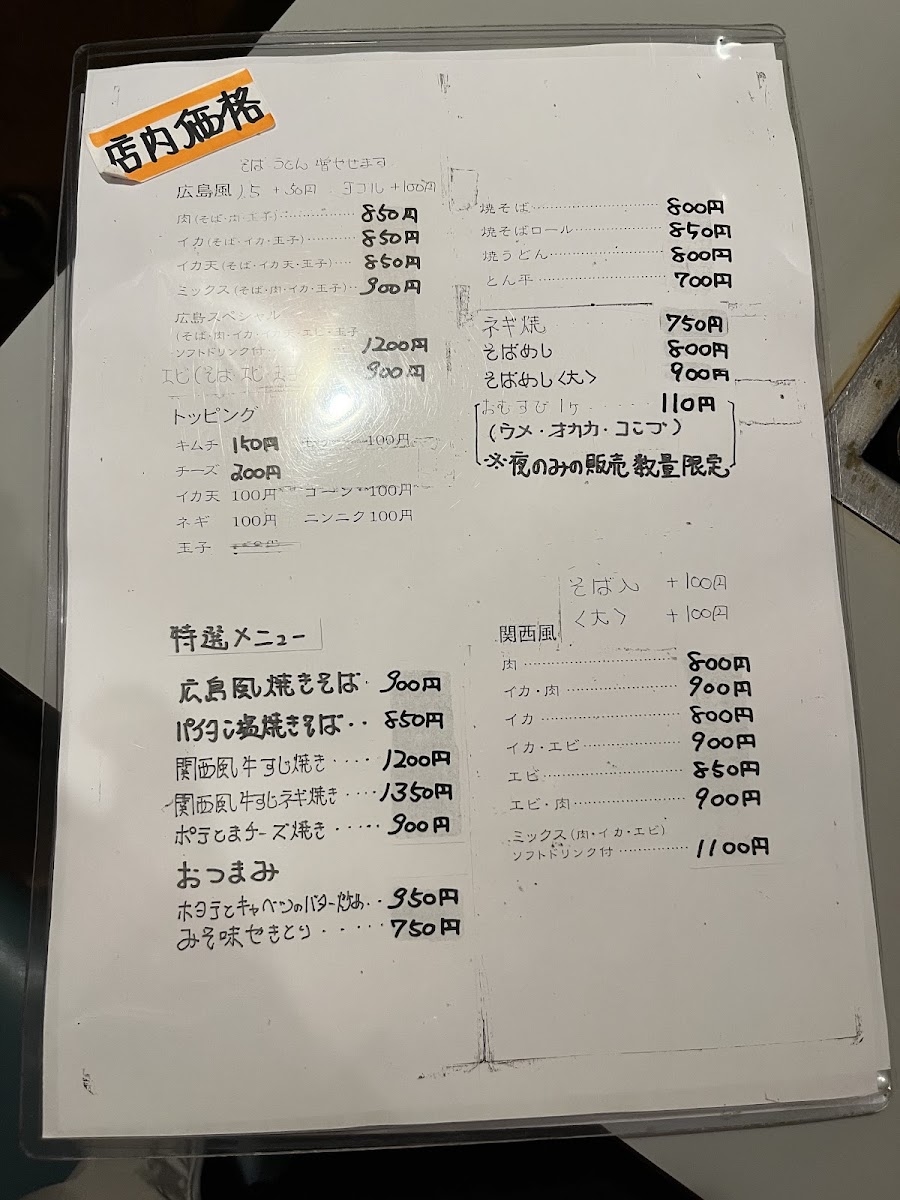 店内価格
そば うどん 増やせます
広島風 1.5 +50円 ダブル +100円
肉(そば・肉・玉子)………… 850円
イカ(そば・イカ・玉子)……… 850円
イカ天(そば・イカ天・玉子)… 850円
ミックス(そば・肉・イカ・玉子)… 900円
広島スペシャル
(そば・肉・イカ・ エビ・玉子
ソフトドリンク付 1200円
エビ(そば・エビ・玉子 900円
トッピング
キムチ 150円 100円
チーズ 200円
イカ天 100円 コーン 100円
ネギ 100円 ニンニク 100円
玉子
特選メニュー
広島風焼きそば・ 900円
パイタン塩焼きそば・・ 850円
関西風牛すじ焼き・・・・ 1200円
関西風牛すじネギ焼き・・・ 1350円
ポテとまチーズ焼き・・・・・ 900円
おつまみ
ホタテとキャベツのバター炒め・・ 950円
みそ味せきとり・・・・・ 750円
焼そば………………… 800円
焼そばロール…………… 850円
焼うどん……………… 800円
とん平………………… 700円
ネギ焼 750円
そばめし 800円
そばめし〈大〉 900円
おむすび 1ヶ・・・・・ 110円
(ウメ・オカカ・コンブ)
※夜のみの販売 数量限定
そば入 +100円
〈大〉 +100円
関西風
肉………………… 800円
イカ・肉……………… 900円
イカ………………… 800円
イカ・エビ…………… 900円
エビ………………… 850円
エビ・肉……………… 900円
ミックス(肉・イカ・エビ)
ソフトドリンク付………… 1100円